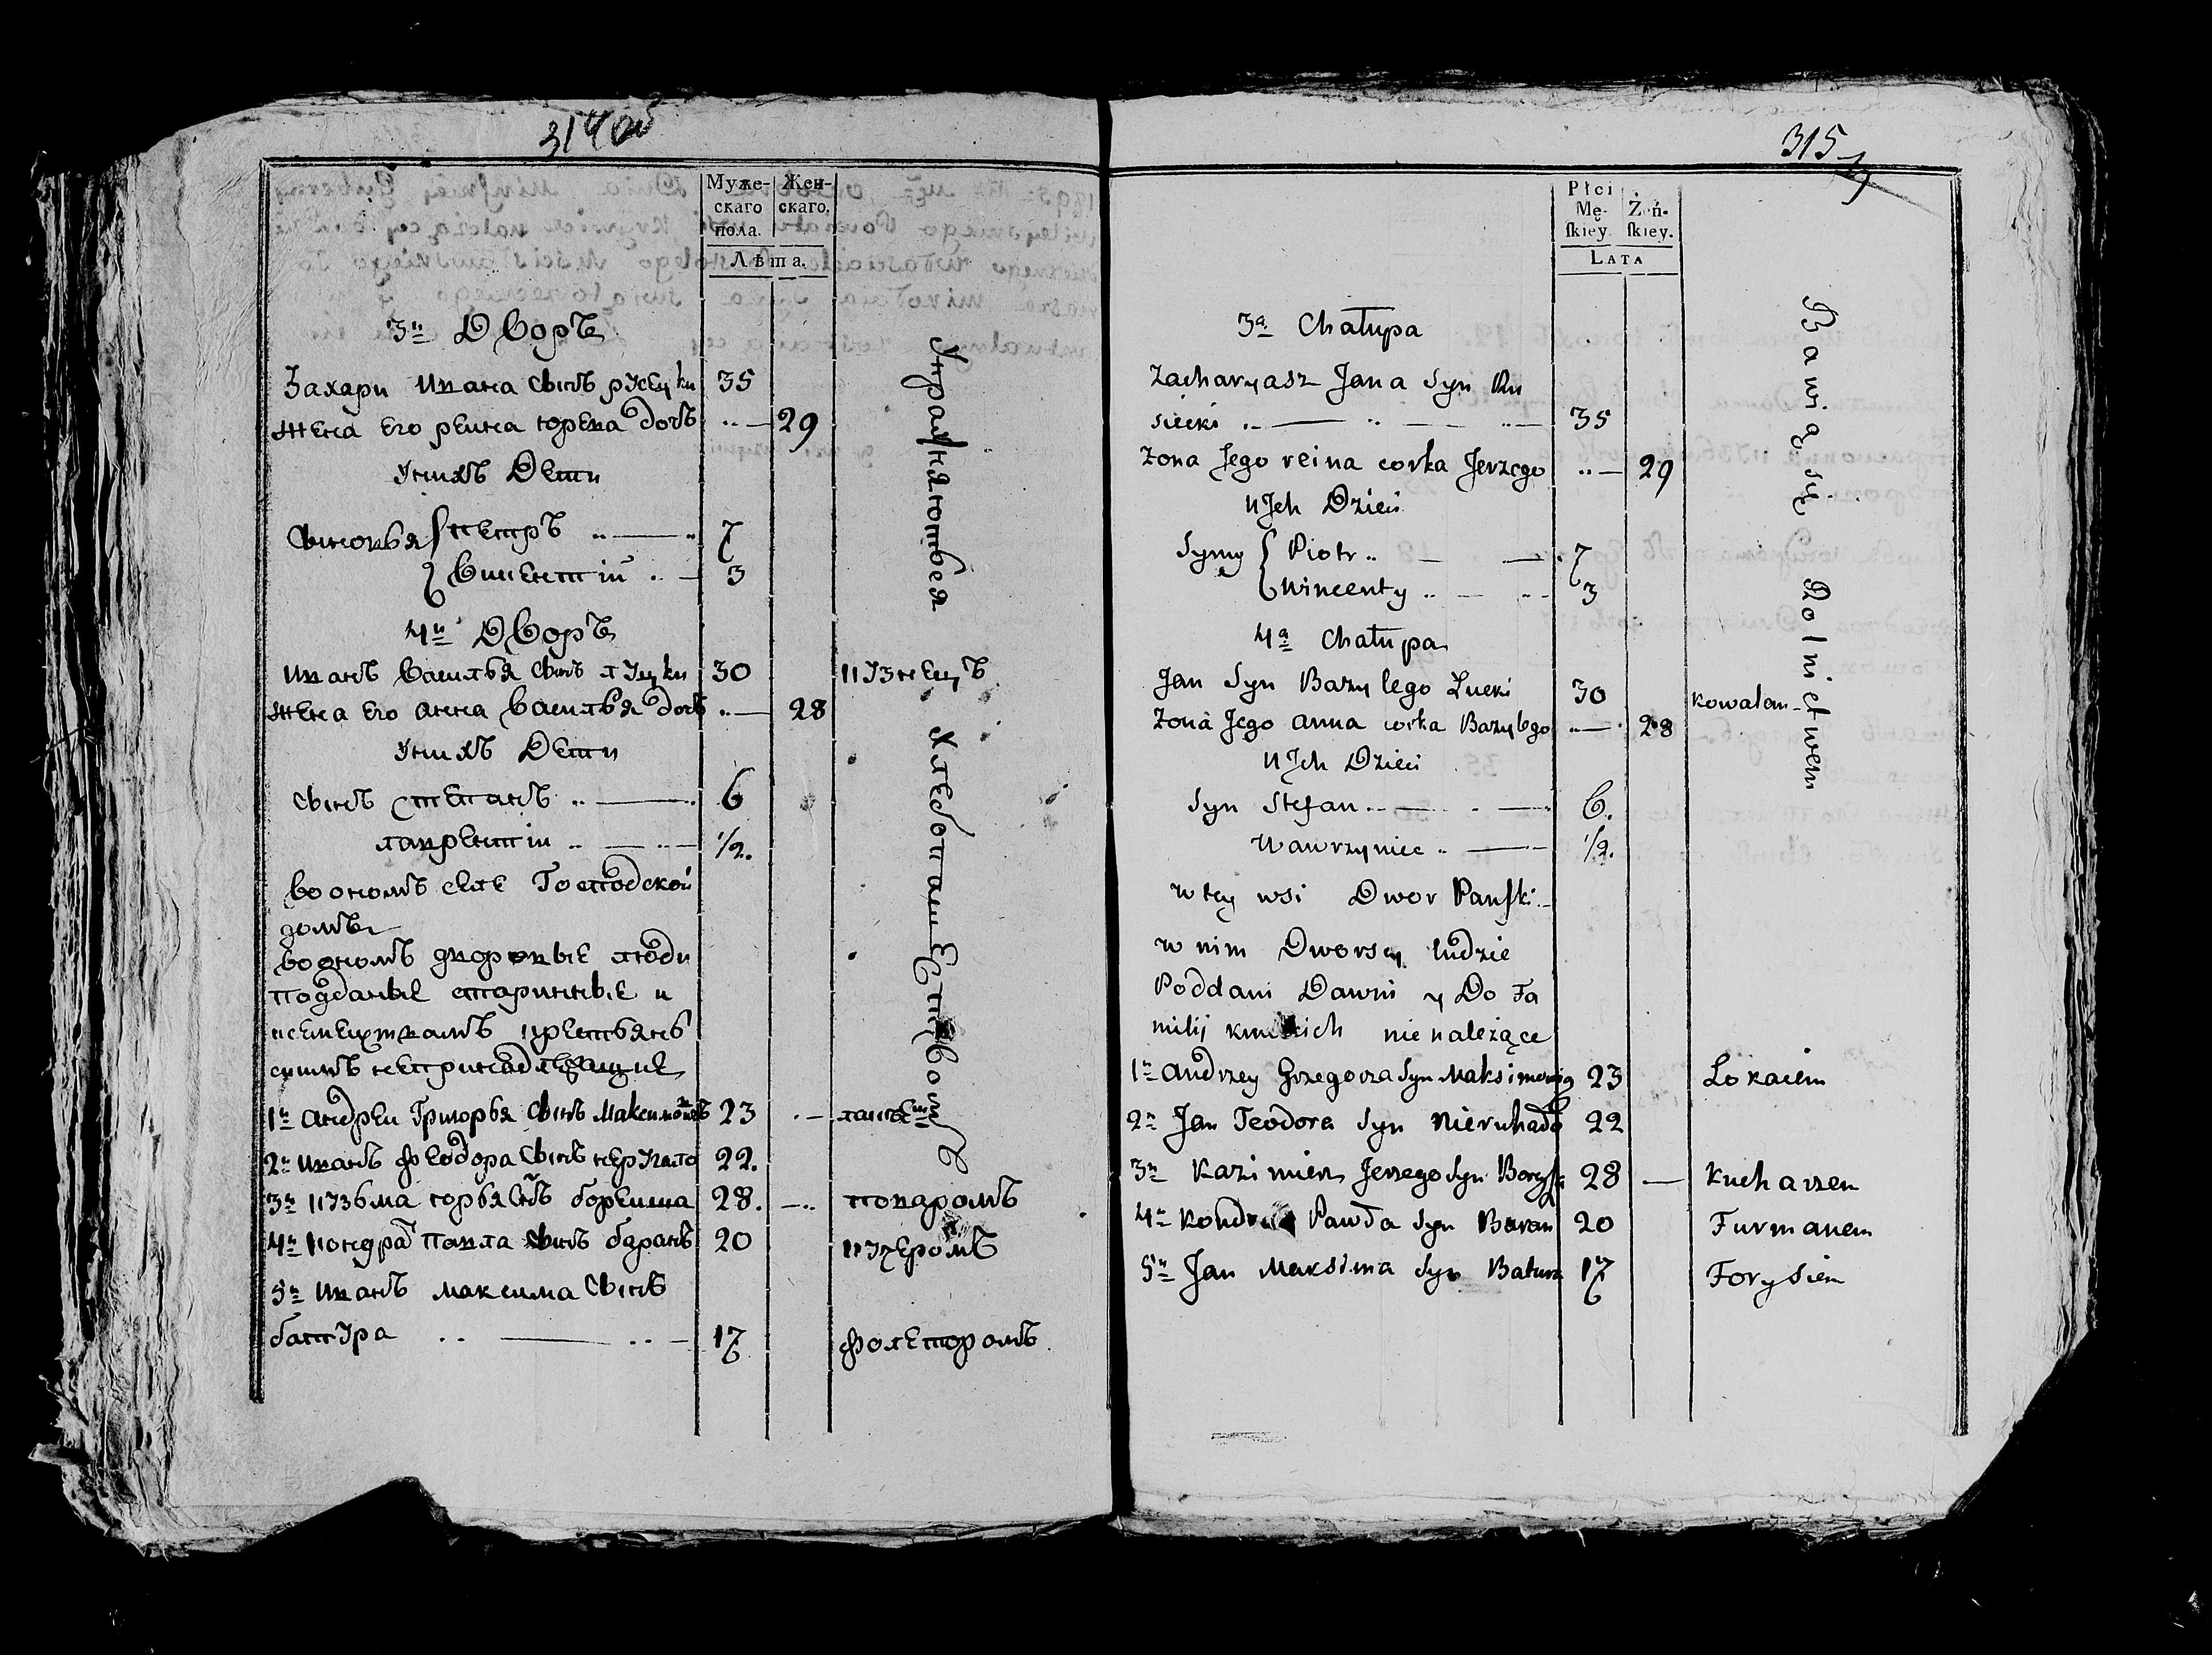 314 об
Муже-
скаго
пола.
Жен-
скаго.
Лѣта.
3й Дворъ
Захари Ивана сынъ русецки 35
жена его реина юрева дочь .. — 29
Унихъ Дети
Сыновья Петръ .. — .. 7
Викентій .. — 3
4й Дворъ
Иванъ Василья сынъ луцки 30 кузнецъ
жена его анна Василья дочь .. — 28
Унихъ Дети
сынъ степанъ .. — 6
лаврентіи .. — .. — 1/2.
во ономъ селе Господской
домъ
во ономъ дворовые люди
подданые старинные и
крестьянъ
1й андреи Григорья сынъ Максимовичъ 23 . —
2й иванъ Феодора сынъ 22.
3й кузьма юрья сынъ 28. — .. поваромъ
4й кондратъ павла сынъ баранъ 20 кучеромъ
5й иванъ максима сынъ
батура .. — .. — 17 фолеторомъ
Упражняютьея Хлебопашествомъ
315
Płci
Mę-
ſkiey.
Żeń-
ſkiey.
LATA
3a Chałupa
Zacharyasz Jana Syn Ru
siecki .. — .. — .. — 35
Zona Jego reina corka Jerzego .. — 29
U Jch Dzieci
Syny Piotr .. — — 7
Wincenty .. — .. 3
4a Chałupa
Jan Syn Bazylego Łucki 30 Kowalem
Zona Jego anna corka Bazylego .. — 28
U Jch Dzieci
Syn Stefan .. — . — 6.
Wawrzyniec .. — 1/2.
w tey wsi Dwor Panſki
w nim Dworscy ludzie
Poddani Dawni y Do Fa
milij nie należące
1n andrzey Grzegorza Syn Maksimowicz 23 Lokaiem
2n Jan Teodora Syn 22
3n Kazimierz Jerzego Syn 28 — Kucharzem
4n Pawła Syn Baran 20 Furmanem
5n Jan Maksima Syn Batura 17 Forysiem
Bawią się Rolnictwem